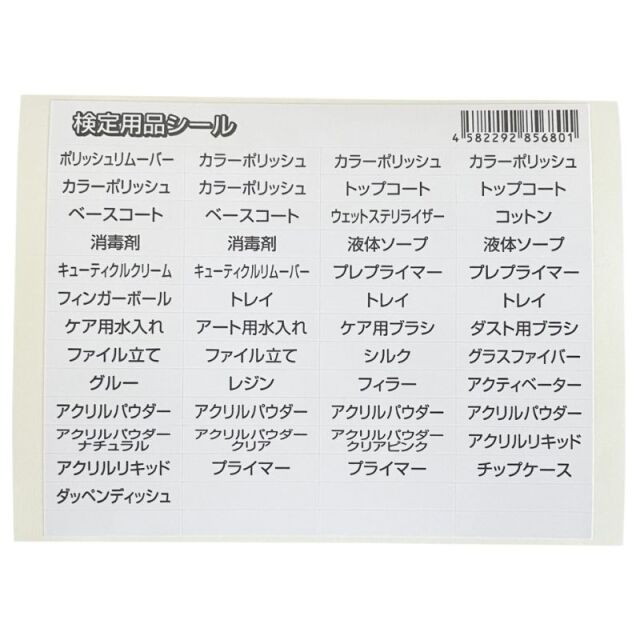 検定用品シール
4 582292 856801
ポリッシュリムーバー カラーポリッシュ カラーポリッシュ カラーポリッシュ
カラーポリッシュ カラーポリッシュ トップコート トップコート
ベースコート ベースコート ウェットステリライザー コットン
消毒剤 消毒剤 液体ソープ 液体ソープ
キューティクルクリーム キューティクルリムーバー プレプライマー プレプライマー
フィンガーボール トレイ トレイ トレイ
ケア用水入れ アート用水入れ ケア用ブラシ ダスト用ブラシ
ファイル立て ファイル立て シルク グラスファイバー
グルー レジン フィラー アクティベーター
アクリルパウダー アクリルパウダー アクリルパウダー アクリルパウダー
アクリルパウダー
ナチュラル
アクリルパウダー
クリア
アクリルパウダー
クリアピンク
アクリルリキッド
アクリルリキッド プライマー プライマー チップケース
ダッペンディッシュ